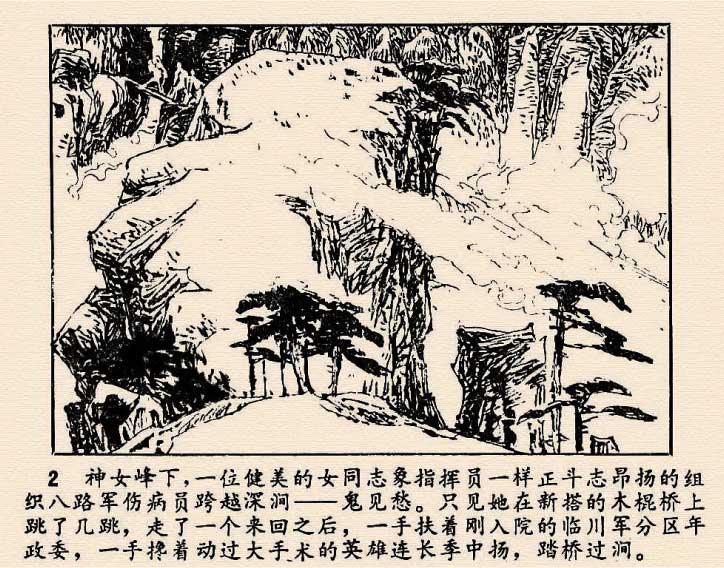 2 神女峰下，一位健美的女同志象指挥员一样正斗志昂扬的组
织八路军伤病员跨越深涧——鬼见愁。只见她在新搭的木棍桥上
跳了几跳，走了一个来回之后，一手扶着刚入院的临川军分区年
政委，一手搀着动过大手术的英雄连长季中扬，踏桥过涧。